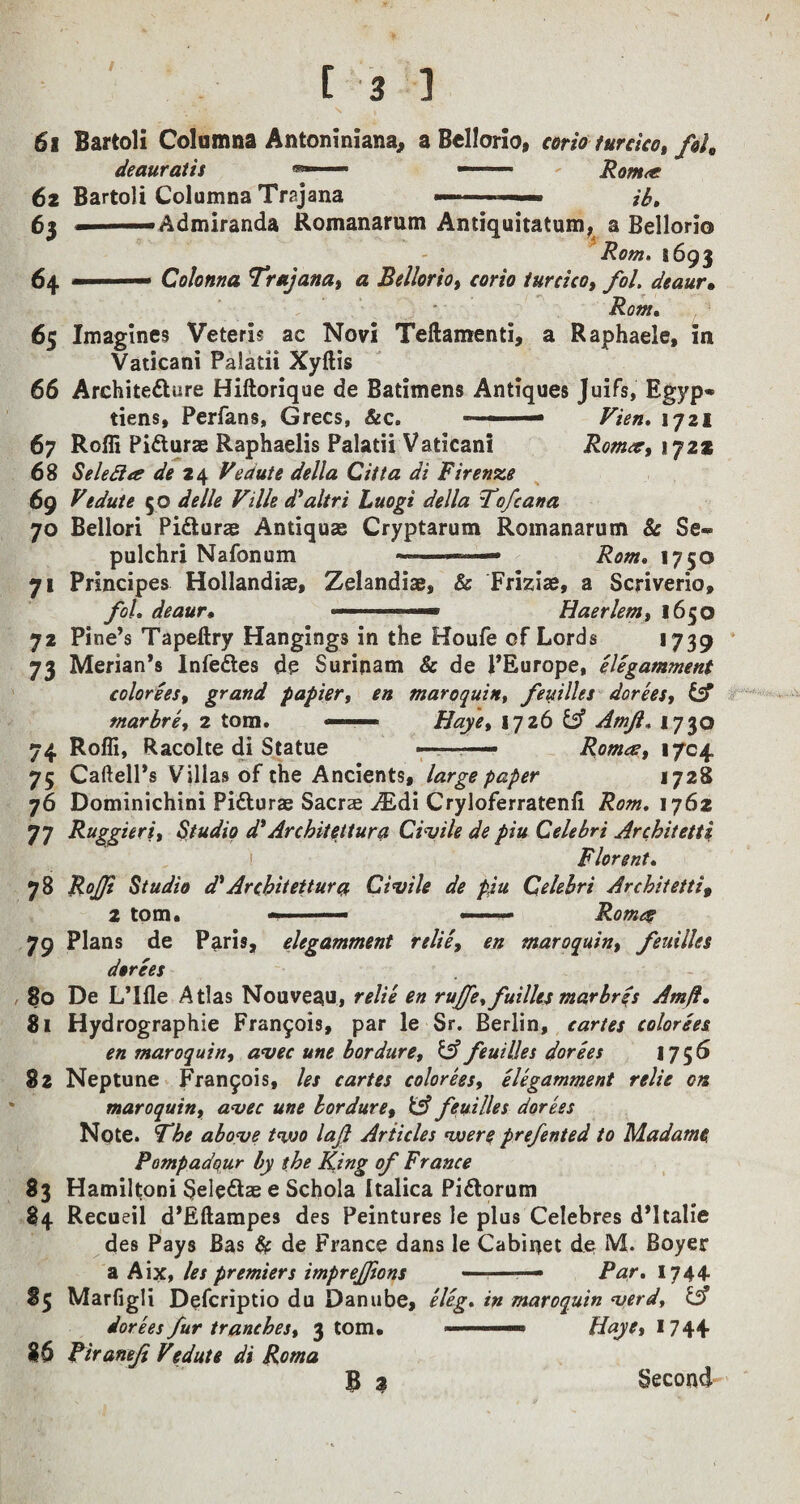 [ 3 ]
61 Bartoli Columna Antoniniana, a Bellorio, corio turcico, fol.
deauratis —— —— Romæ
62 Bartoli Columna Trajana ——— ib.
63 ———Admiranda Romanarum Antiquitatum, a Bellorio
Rom. 1693
64 ——— Colonna Trajana, a Bellorio, corio turcico, fol. deaur.
Rom.
65 Imagines Veteris ac Novi Teſtamenti, a Raphaele, in
Vaticani Palatii Xyſtis
66 Architecture Hiſtorique de Batimens Antiques Juifs, Egyp-
tiens, Perſans, Grecs, &c. ——— Vien. 1721
67 Roſſi Picturæ Raphaelis Palatii Vaticani Romæ, 1722
68 Selectæ de 24 Vedute della Citta di Firenze
69 Vedute 50 delle Ville d'altri Luogi della Toſcana
70 Bellori Picturæ Antiquæ Cryptarum Romanarum & Se-
pulchri Naſonum ——— Rom. 1750
71 Principes Hollandiæ, Zelandiæ, & Friziæ, a Scriverio,
fol. deaur. ——— Haerlem, 1650
72 Pine's Tapeſtry Hangings in the Houſe of Lords 1739
73 Merian's Inſectes de Surinam & de l'Europe, élégamment
colorées, grand papier, en maroquin, feuilles dorées, &
marbré, 2 tom. —— Haye, 1726 & Amſt. 1730
74 Roſſi, Racolte di Statue ——— Romæ, 1704
75 Caſtell's Villas of the Ancients, large paper 1728
76 Dominichini Picturæ Sacræ Ædi Cryloferratenſi Rom. 1762
77 Ruggieri, Studio d'Architettura Civile de piu Celebri Architetti
Florent.
78 Roſſi Studio d'Architettura Civile de piu Celebri Architetti,
2 tom. ——— —— Romæ
79 Plans de Paris, elegamment relié, en maroquin, feuilles
dorées
80 De L'Iſle Atlas Nouveau, relié en ruſſe, fuilles marbrés Amſt.
81 Hydrographie François, par le Sr. Berlin, cartes colorées
en maroquin, avec une bordure, & feuilles dorées 1756
82 Neptune François, les cartes colorées, élégamment relie en
maroquin, avec une bordure, & feuilles dorées
Note. The above two laſt Articles were preſented to Madame
Pompadour by the King of France
83 Hamiltoni Selectæ e Schola Italica Pictorum
84 Recueil d'Eſtampes des Peintures le plus Celebres d'Italie
des Pays Bas & de France dans le Cabinet de M. Boyer
a Aix, les premiers impreſſions ——— Par. 1744
85 Marſigli Deſcriptio du Danube, élég. in maroquin verd, &
dorées ſur tranches, 3 tom. ——— Haye, 1744
86 Piraneſi Vedute di Roma
B 2 Second